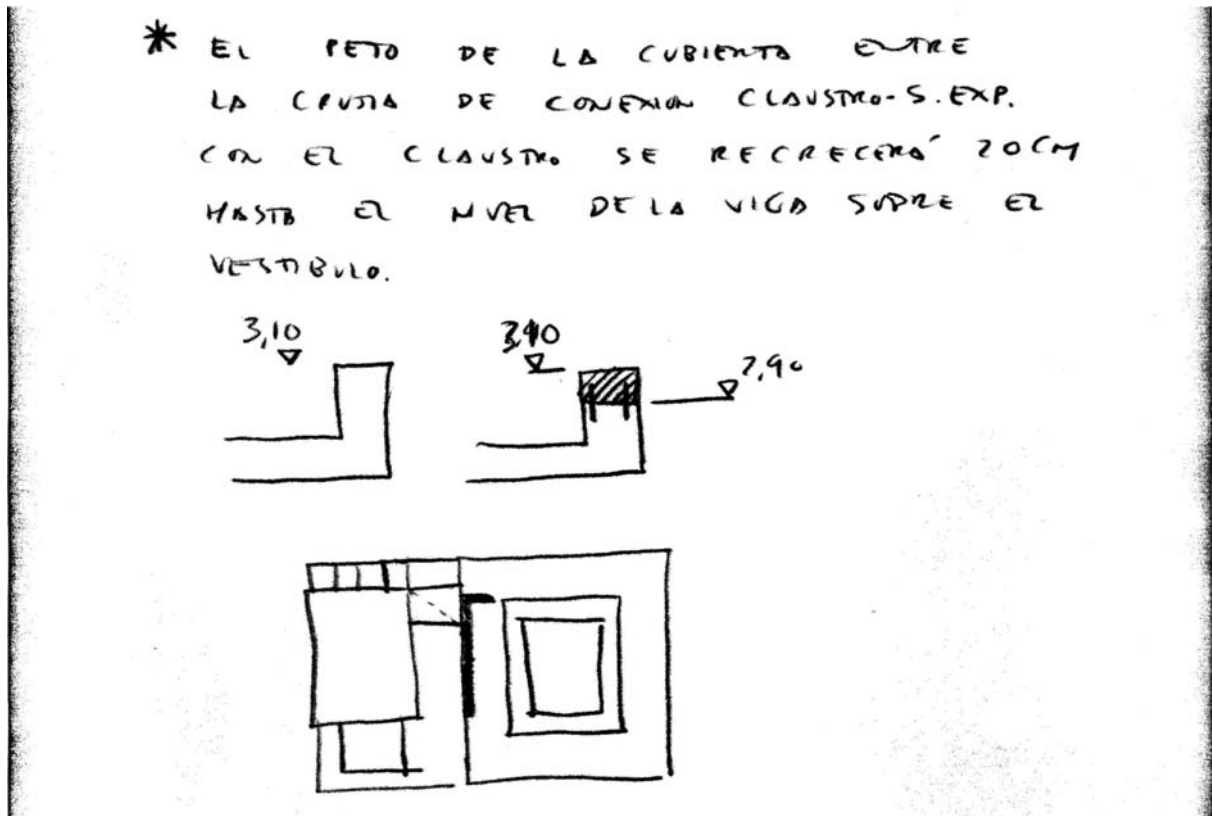 * EL PETO DE LA CUBIERTA ENTRE
LA CRUJIA DE CONEXION CLAUSTRO-S. EXP.
CON EL CLAUSTRO SE RECRECERÁ 20CM
HASTA EL NIVEL DE LA VIGA SOBRE EL
VESTIBULO.
3,10
3,10
2,90